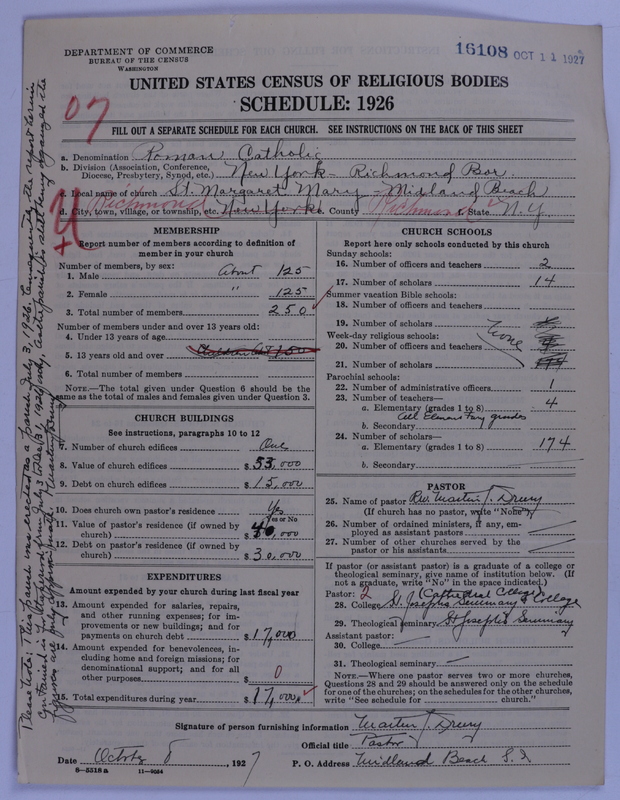 DEPARTMENT OF COMMERCE
BUREAU OF THE CENSUS
WASHINGTON
16108 OCT 11 1927
UNITED STATES CENSUS OF RELIGIOUS BODIES
SCHEDULE: 1926
07
FILL OUT A SEPARATE SCHEDULE FOR EACH CHURCH. SEE INSTRUCTIONS ON THE BACK OF THIS SHEET
a. Denomination Roman Catholic
b. Division (Association, Conference, Diocese, Presbytery, Synod, etc.) New York - Richmond Bor.
c. Local name of church St. Margaret Mary - Midland Beach
d. City, town, village, or township, etc. Richmond New York e. County Richmond f. State N.Y.
MEMBERSHIP
Report number of members according to definition of
member in your church
Number of members, by sex:
1. Male About 125
2. Female " 125
3. Total number of members 250
Number of members under and over 13 years old:
4. Under 13 years of age
5. 13 years old and over
6. Total number of members
NOTE.—The total given under Question 6 should be the
same as the total of males and females given under Question 3.
CHURCH BUILDINGS
See instructions, paragraphs 10 to 12
7. Number of church edifices One
8. Value of church edifices $ 53,000
9. Debt on church edifices $ 15,000
10. Does church own pastor's residence? Yes
Yes or No
11. Value of pastor's residence (if owned by
church) $ 40,000
12. Debt on pastor's residence (if owned by
church) $ 30,000
EXPENDITURES
Amount expended by your church during last fiscal year
13. Amount expended for salaries, repairs,
and other running expenses; for im-
provements or new buildings; and for
payments on church debt $ 17,000
14. Amount expended for benevolences, in-
cluding home and foreign missions; for
denominational support; and for all
other purposes $ 0
15. Total expenditures during year $ 17,000
CHURCH SCHOOLS
Report here only schools conducted by this church
Sunday schools:
16. Number of officers and teachers 2
17. Number of scholars 14
Summer vacation Bible schools:
18. Number of officers and teachers
19. Number of scholars
None
Week-day religious schools:
20. Number of officers and teachers
21. Number of scholars
Parochial schools:
22. Number of administrative officers 1
23. Number of teachers—
a. Elementary (grades 1 to 8) 4
All Elementary grades
b. Secondary
24. Number of scholars—
a. Elementary (grades 1 to 8) 174
b. Secondary
PASTOR
25. Name of pastor Rev. Martin J. Drury
(If church has no pastor, write "None")
26. Number of ordained ministers, if any, em-
ployed as assistant pastors
27. Number of other churches served by the
pastor or his assistants
If pastor (or assistant pastor) is a graduate of a college or
theological seminary, give name of institution below. (If
not a graduate, write "No" in the space indicated.)
Pastor: 2 (Cathedral College)
28. College St. Josephs Seminary & College
29. Theological seminary St Josephs Seminary
Assistant pastor:
30. College
31. Theological seminary
NOTE.—Where one pastor serves two or more churches,
Questions 28 and 29 should be answered only on the schedule
for one of the churches; on the schedules for the other churches,
write "See schedule for church."
Signature of person furnishing information Martin J. Drury
Official title Pastor
Date October 8, 1927 P. O. Address Midland Beach S.I.
8-5518a 11-9054
Please Note: This parish was erected as a parish July 3, 1926. Consequently the report herein
contained is